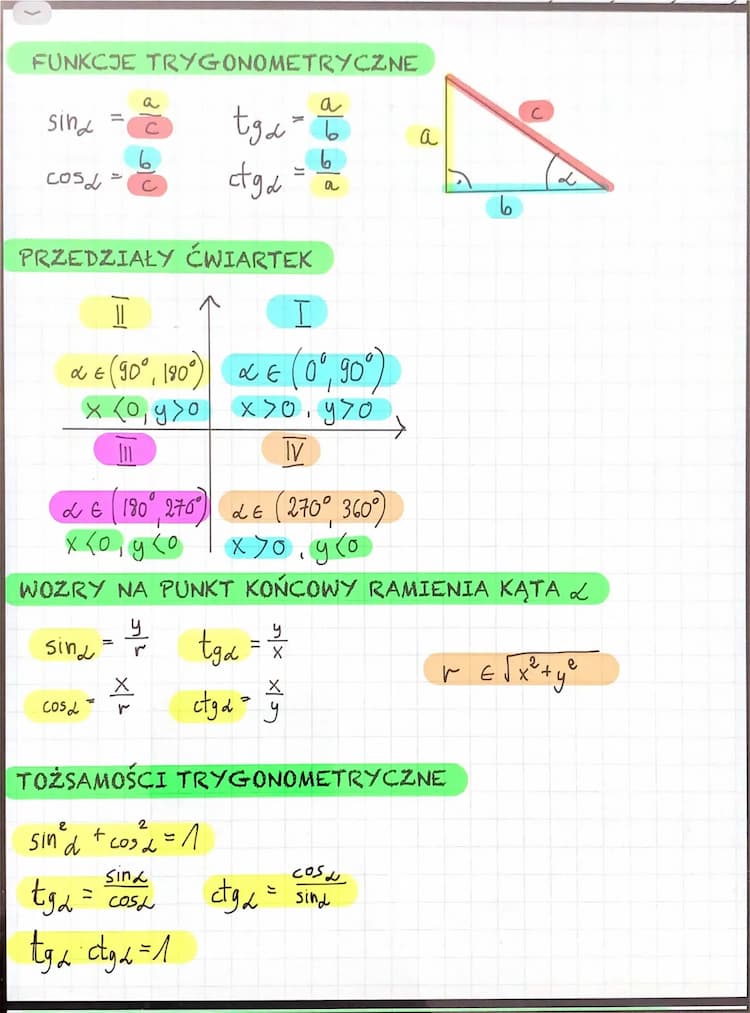 FUNKCJE TRYGONOMETRYCZNE
sinα = a/c   tgα = a/b
cosα = b/c   ctgα = b/a
a   c   α   b
PRZEDZIAŁY ĆWIARTEK
II   I
α ∈ (90°, 180°)   α ∈ (0°, 90°)
x < 0, y > 0   x > 0, y > 0
III   IV
α ∈ (180°, 270°)   α ∈ (270°, 360°)
x < 0, y < 0   x > 0, y < 0
WOZRY NA PUNKT KOŃCOWY RAMIENIA KĄTA α
sinα = y/r   tgα = y/x
cosα = x/r   ctgα = x/y
r ∈ √x²+y²
TOŻSAMOŚCI TRYGONOMETRYCZNE
sin²α + cos²α = 1
tgα = sinα/cosα   ctgα = cosα/sinα
tgα · ctgα = 1